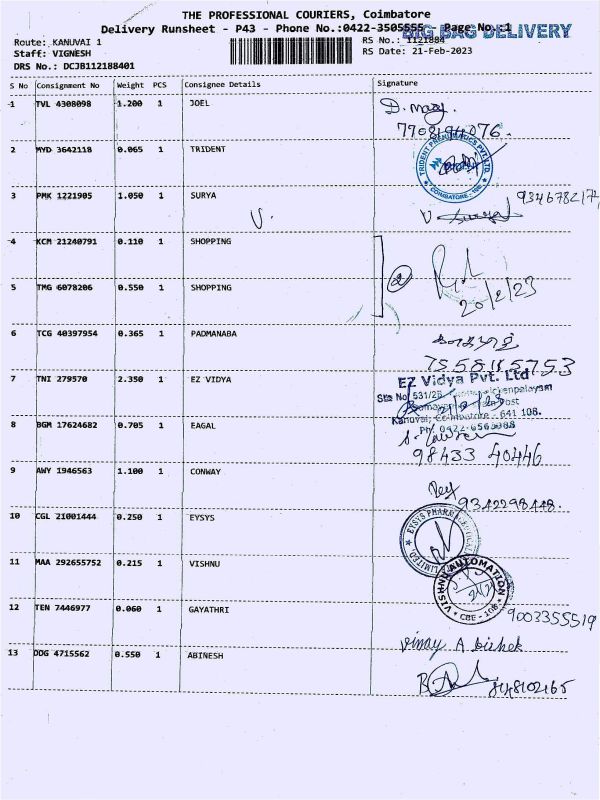 THE PROFESSIONAL COURIERS, Coimbatore
Delivery Runsheet - P43 - Phone No.:0422-3505555 - Page No.:1
BIG BAG DELIVERY
Route: KANUVAI 1
Staff: VIGNESH
DRS No.: DCJB112188401
RS No.: 1121884
RS Date: 21-Feb-2023
S No Consignment No Weight PCS Consignee Details Signature
1 TVL 4308098 1.200 1 JOEL
D. Mary.
2 MYD 3642118 0.065 1 TRIDENT
COIMBATORE
3 PMK 1221905 1.050 1 SURYA
9346782172
V. V Surya
4 KCM 21240791 0.110 1 SHOPPING
2
5 TMG 6078206 0.550 1 SHOPPING
20/2/23
6 TCG 40397954 0.365 1 PADMANABA
7 TNI 279570 2.350 1 EZ VIDYA
EZ Vidya Pvt. Ltd
Kanuvai, Coimbatore - 641 108.
Ph: 0422-6563308
8 BGM 17624682 0.705 1 EAGAL
98433 40446
9 AWY 1946563 1.100 1 CONWAY
9342298448.
10 CGL 21001444 0.250 1 EYSYS
EYSYS PHARMACEUTICAL LIMITED,
11 MAA 292655752 0.215 1 VISHNU
VISHNU AUTOMATION
CBE - 108
12 TEN 7446977 0.060 1 GAYATHRI
9003355519
13 DDG 4715562 0.550 1 ABINESH
8148102165